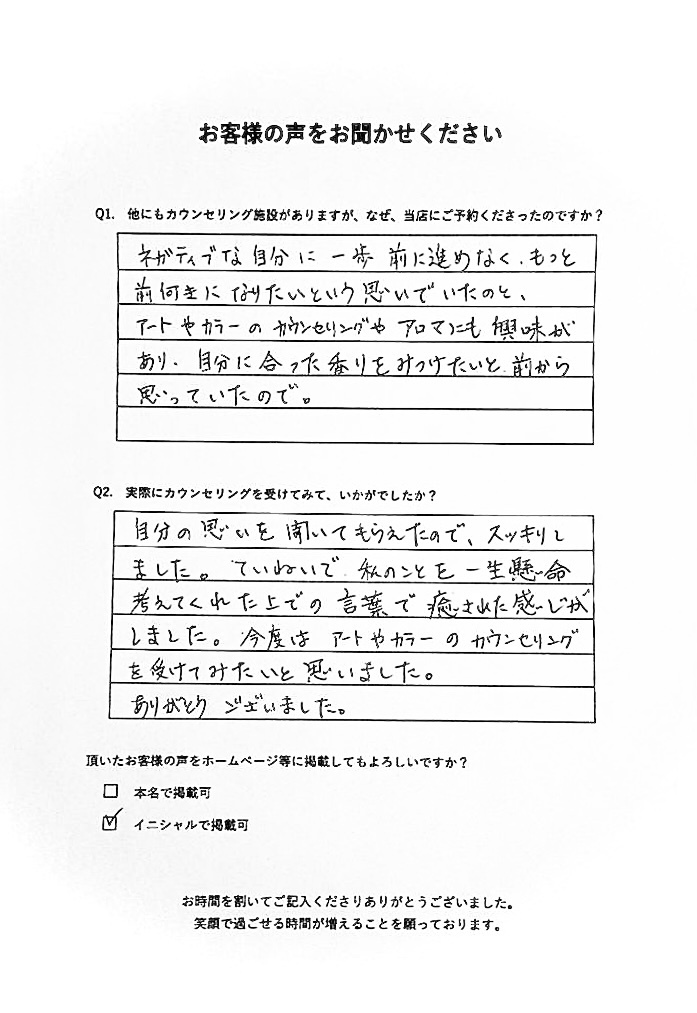 お客様の声をお聞かせください
Q1. 他にもカウンセリング施設がありますが、なぜ、当店にご予約くださったのですか？
ネガティブな自分に一歩前に進めなく、もっと
前何きになりたいという思いでいたのと、
アートやカラーのカウンセリングやアロマにも興味が
あり、自分に合った香りをみつけたいと前から
思っていたので。
Q2. 実際にカウンセリングを受けてみて、いかがでしたか？
自分の思いを聞いてもらえたので、スッキリし
ました。ていねいで私のことを一生懸命
考えてくれた上での言葉で癒された感じが
しました。今度はアートやカラーのカウンセリング
を受けてみたいと思いました。
ありがとうございました。
頂いたお客様の声をホームページ等に掲載してもよろしいですか？
本名で掲載可
イニシャルで掲載可
お時間を割いてご記入くださりありがとうございました。
笑顔で過ごせる時間が増えることを願っております。